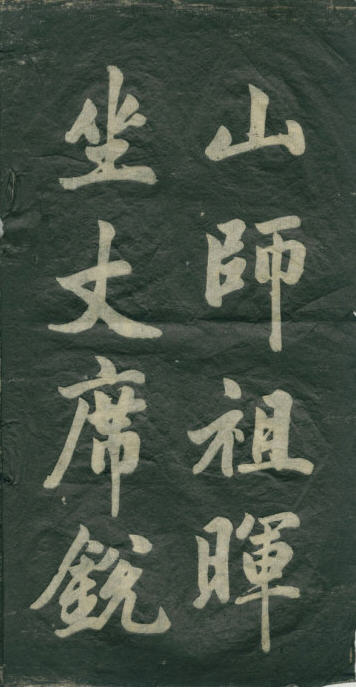 山師祖暉
坐丈席銳